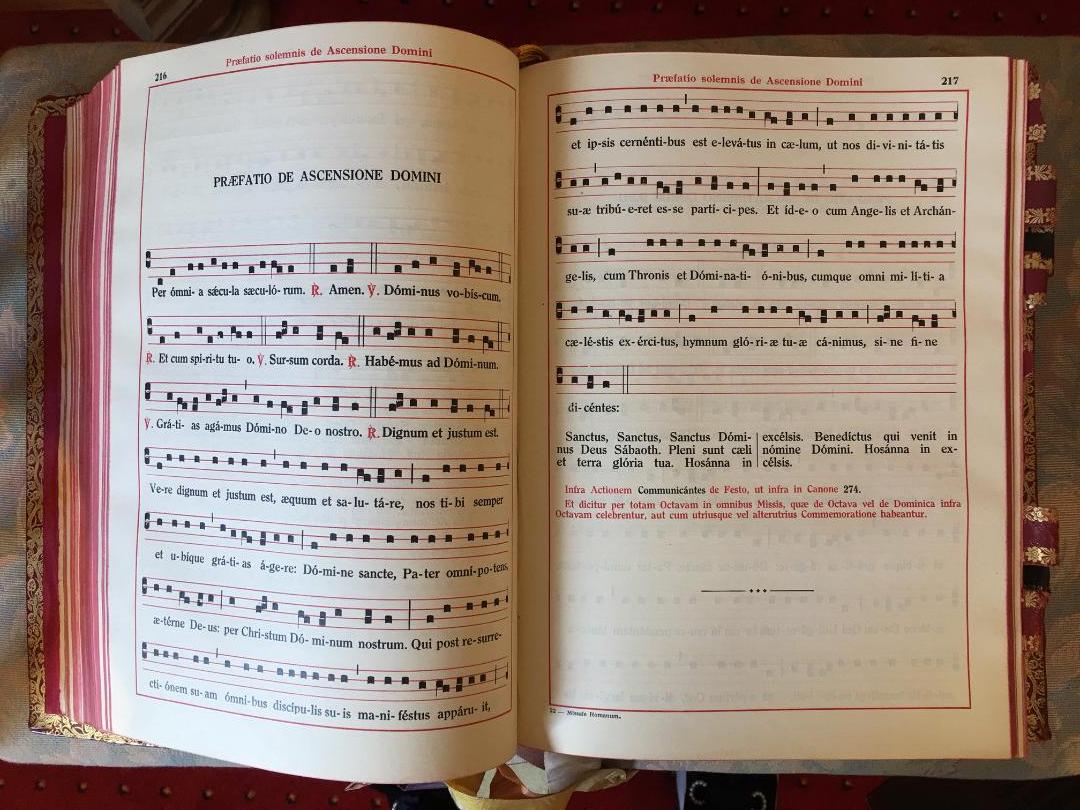 216
Præfatio solemnis de Ascensione Domini
PRÆFATIO DE ASCENSIONE DOMINI
Per ómni- a sǽcu-la sæcu-ló- rum. ℟. Amen. ℣. Dómi-nus vo-bis-cum.
℟. Et cum spi-ri-tu tu- o. ℣. Sur-sum corda. ℟. Habé-mus ad Dómi-num.
℣. Grá-ti- as agá-mus Dómi-no De-o nostro. ℟. Dignum et justum est.
Ve-re dignum et justum est, æquum et sa-lu- tá-re, nos ti-bi semper
et u-bíque grá-ti-as á-ge-re: Dó-mi-ne sancte, Pa-ter omní-po-tens,
æ-térne De-us: per Chri-stum Dó- mi-num nostrum. Qui post re-surre-
cti-ónem su-am ómni-bus discípu-lis su-is ma-ni-féstus appáru- it,
Præfatio solemnis de Ascensione Domini
217
et ip-sis cernénti-bus est e-levá-tus in cæ-lum, ut nos di-vi-ni-tá-tis
su-æ tribú-e-ret es-se partí-ci-pes. Et íd-e-o cum Ange-lis et Archán-
ge-lis, cum Thronis et Dómi-na-ti- ó-ni-bus, cumque omni mi-lí-ti-a
cæ-lé-stis ex-érci-tus, hymnum gló-ri-æ tu-æ cá-nimus, si-ne fi-ne
di-céntes:
Sanctus, Sanctus, Sanctus Dómi-
nus Deus Sábaoth. Pleni sunt cæli
et terra glória tua. Hosánna in
excélsis. Benedíctus qui venit in
nómine Dómini. Hosánna in ex-
célsis.
Infra Actionem Communicántes de Festo, ut infra in Canone 274.
Et dicitur per totam Octavam in omnibus Missis, quæ de Octava vel de Dominica infra
Octavam celebrentur, aut cum utriusque vel alterutrius Commemoratione habeantur.
22 — Missale Romanum.